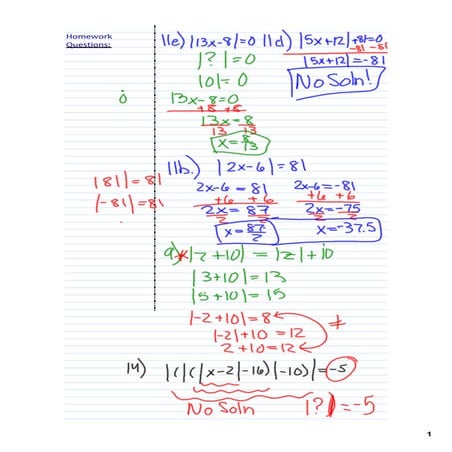 Homework
Questions:
11e) |13x-8|=0
|?|=0
|0|=0
13x-8=0
+8 +8
13x=8
13 13
x=8/13
11d) |5x+12|+81=0
-81 -81
|5x+12|=-81
No Soln!
|81|=81
|-81|=81
11b.) |2x-6|=81
2x-6=81
+6 +6
2x=87
2 2
x=87/2
2x-6=-81
+6 +6
2x=-75
2 2
x=-37.5
9) *|z+10|=|z|+10
|3+10|=13
|5+10|=15
|-2+10|=8
≠
|-2|+10=12
2+10=12
14) |(|(|x-2|-16)|-10)|=-5
No Soln
|?|=-5
1